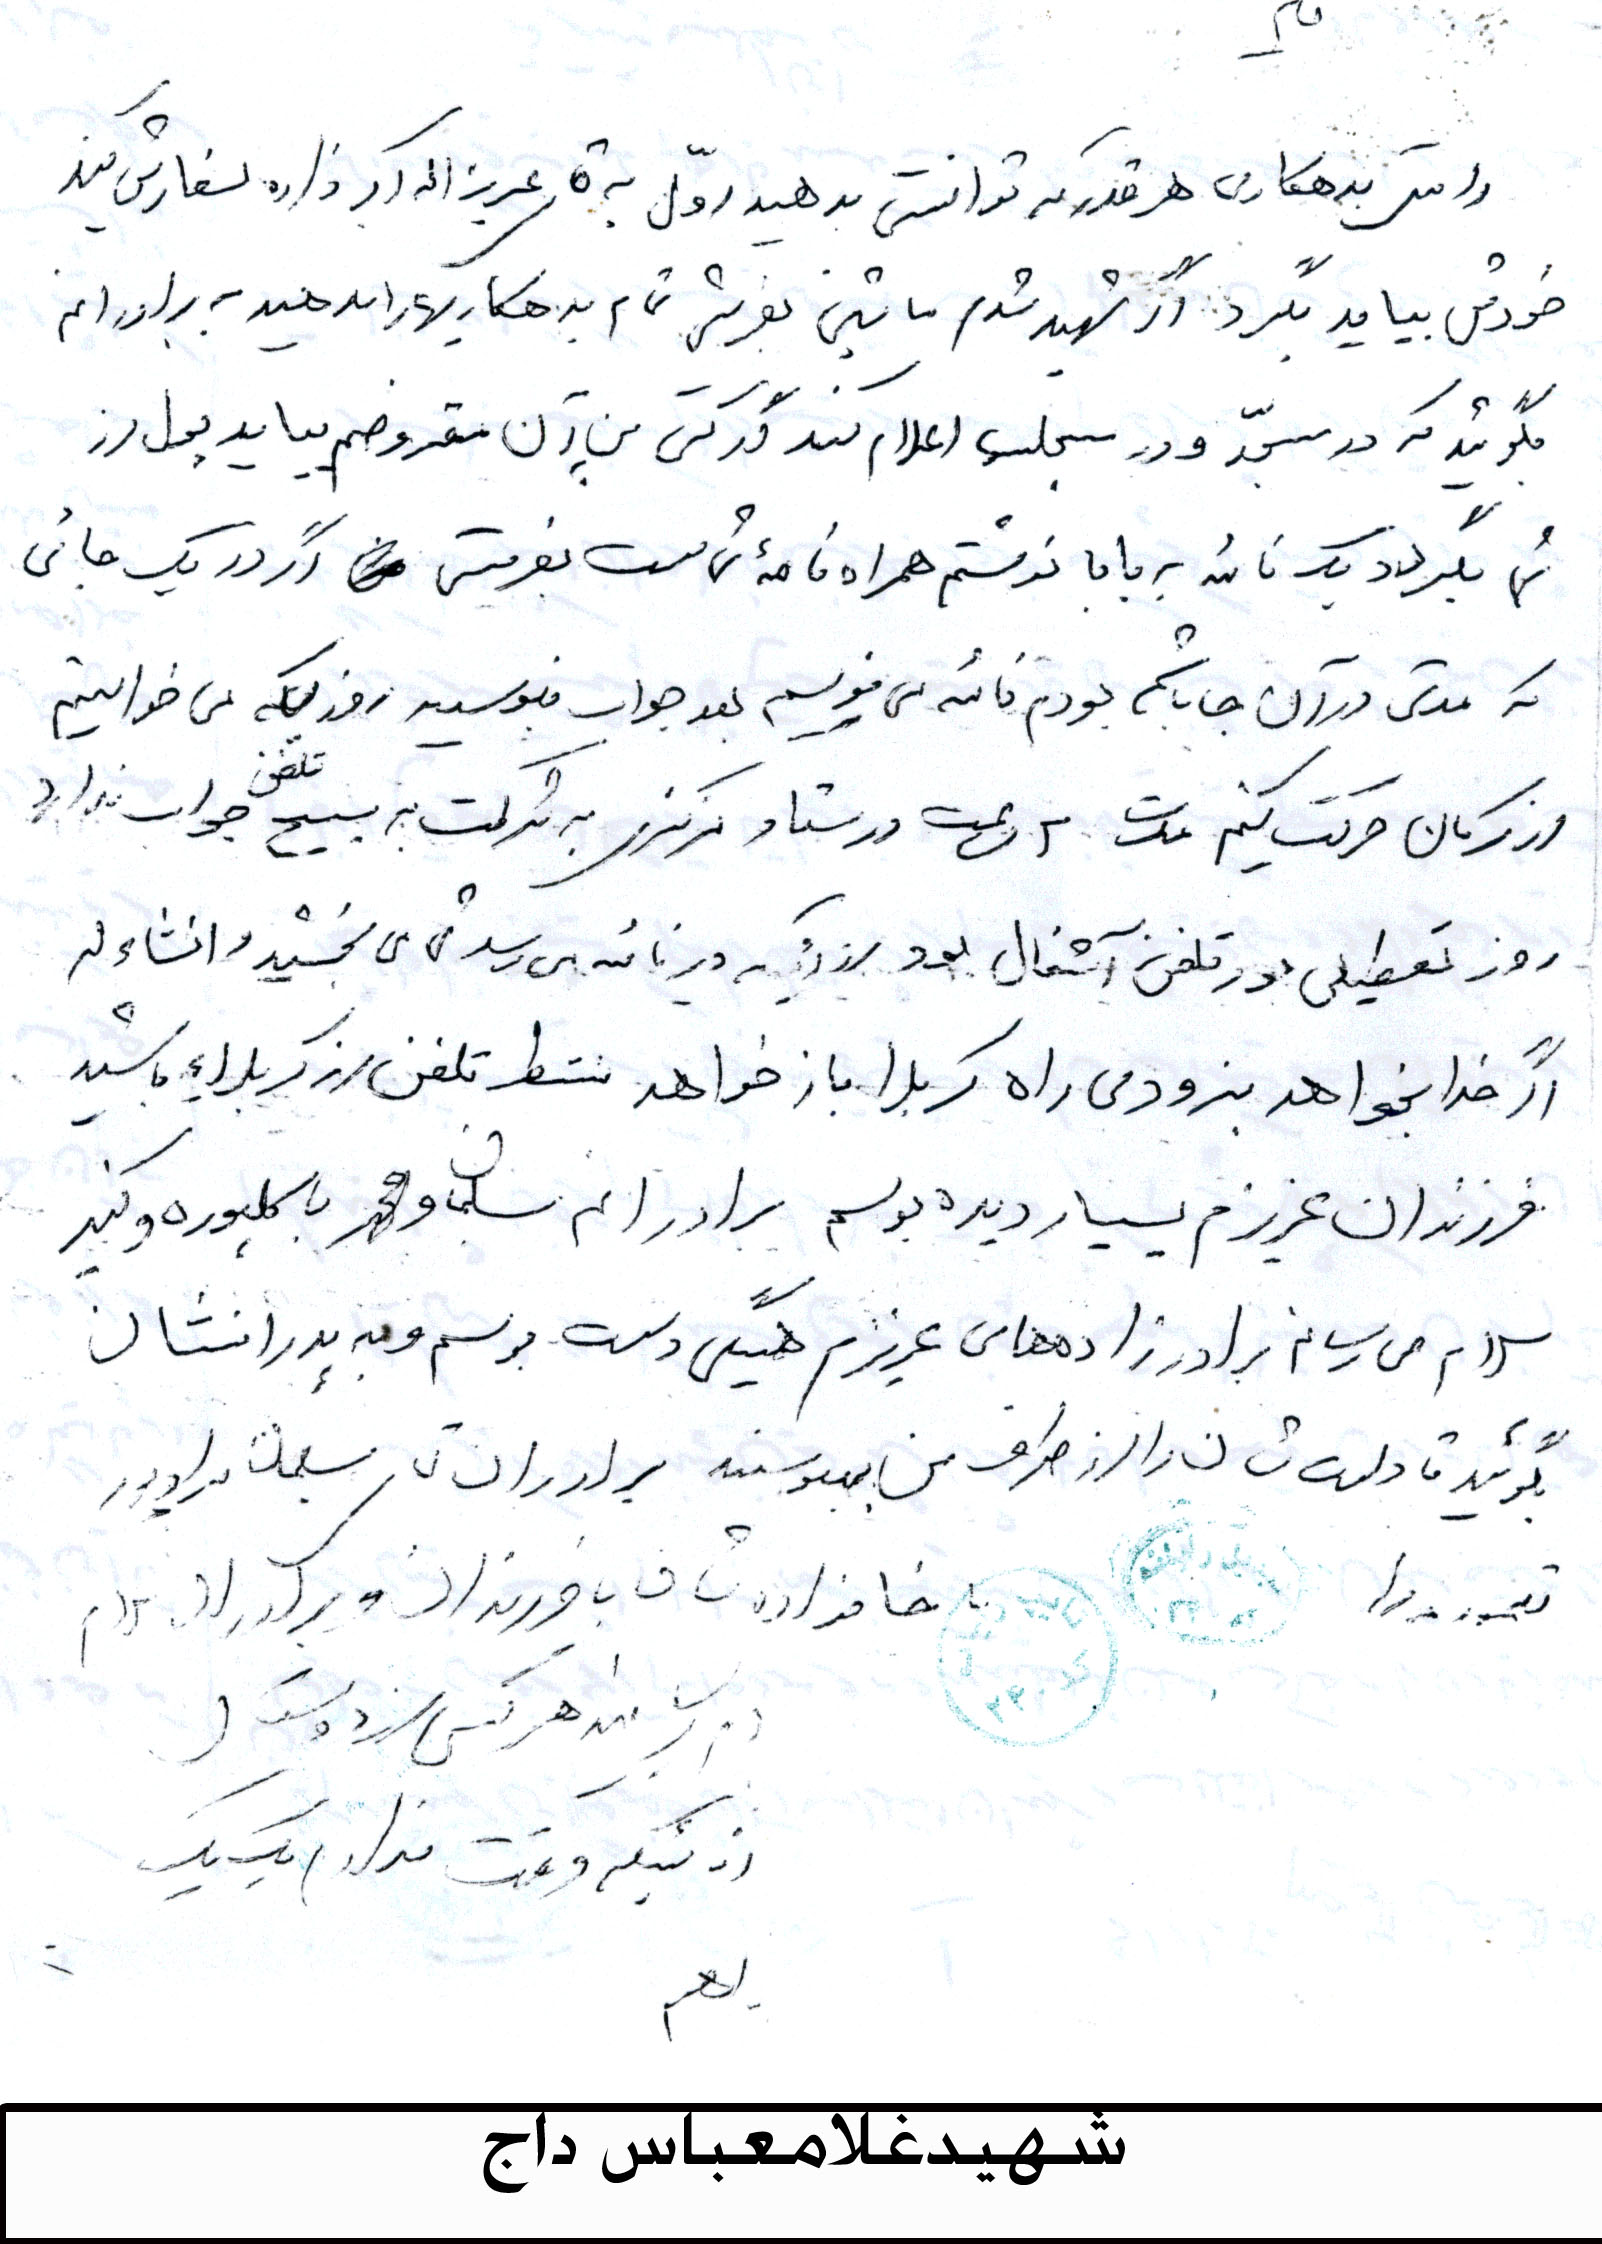 بدهکاری هر قدر که توانستی بدهید اوّل به عزیزاله سفارش کنید
خودش بیاید بگیرد اگر شهید شدم ماشین بفروش تمام بدهکاریها را بدهید به برادرانم
بگوئید که در مسجد و در مجلس اعلام کنند اگر کسی من از آن مقروضم بیاید پول از
شما بگیرد و یک نامه به بابا نوشتم همراه نامهٔ شماست بفرستی اگر در یک جائی
که مدتی در آن جا باشم بودم نامه می نویسم بعد جواب بنویسید روزیکه می خواستیم
از کرمان حرکت کنیم ساعت در ستاد مرکزی به شرکت به بسیج تلفن جواب نداد
روز تعطیلی بود تلفن آشغال بود از اینکه دیر نامه می رسد می بخشید و انشاءاله
اگر خدا بخواهد بزودی راه کربلا باز خواهد منتظر تلفن از کربلاء باشید
فرزندان عزیزم بسیار دیده بوسم برادرانم سلمان و با
سلام می رسانم برادرزاده‌های عزیزم همگی دست بوسم و به پدرانشان
بگوئید تا دست شان را از طرف من ببوسند برادران سلمان
با خانواده شان با فرزندان و برادران سلام
می رسانم هر کسی
از اینکه وقت ندارم یک یک
شهیدغلامعباس داج